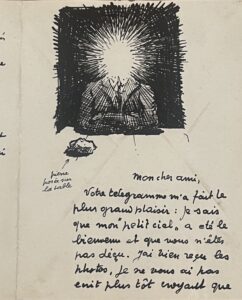 pierre
posée sur
la table
mon cher ami,
Votre télégramme m'a fait le
plus grand plaisir : je sais
que mon "petit ciel" a été le
bienvenu et que vous n'êtes
pas déçu. j'ai bien reçu les
photos. Je ne vous ai pas
écrit plus tôt croyant que